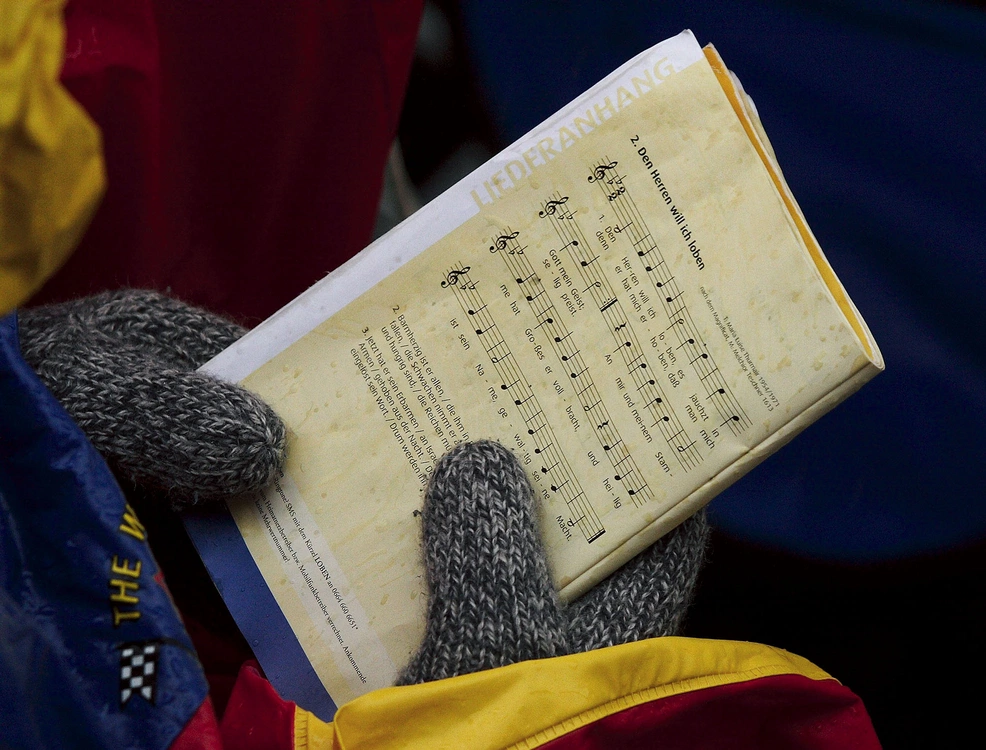 LIEDERANHANG
2. Den Herren will ich loben
T: Maria Luise Thurmair 1954/1971
nach dem Magnifikat, M: Melchior Teschner 1613
1. Den Her-ren will ich lo - ben, es jauchzt in
denn er hat mich er - ho-ben, daß man mich
Gott mein Geist,
se - lig preist. An mir und mei-nem Stam -
me hat Gro-ßes er voll - bracht, und hei - lig
ist sein Na - me, ge - wal-tig sei - ne Macht.
2. Barmherzig ist er allen, / die ihm in
fallen, / die Schwachen nimmt er
und hungrig sind, / die Reichen
3. Jetzt hat er sein Erbarmen / an Israel
Armen / gehoben aus der Nacht. /
eingelöst sein Wort. / Drum werden
SMS mit dem Kürzel LOBEN an 0664 660 6651*
Heimnetzbetreiber bzw. Mobilfunkbetreiber verrechnet. Ankommende
Mehrwertnummer!
THE W